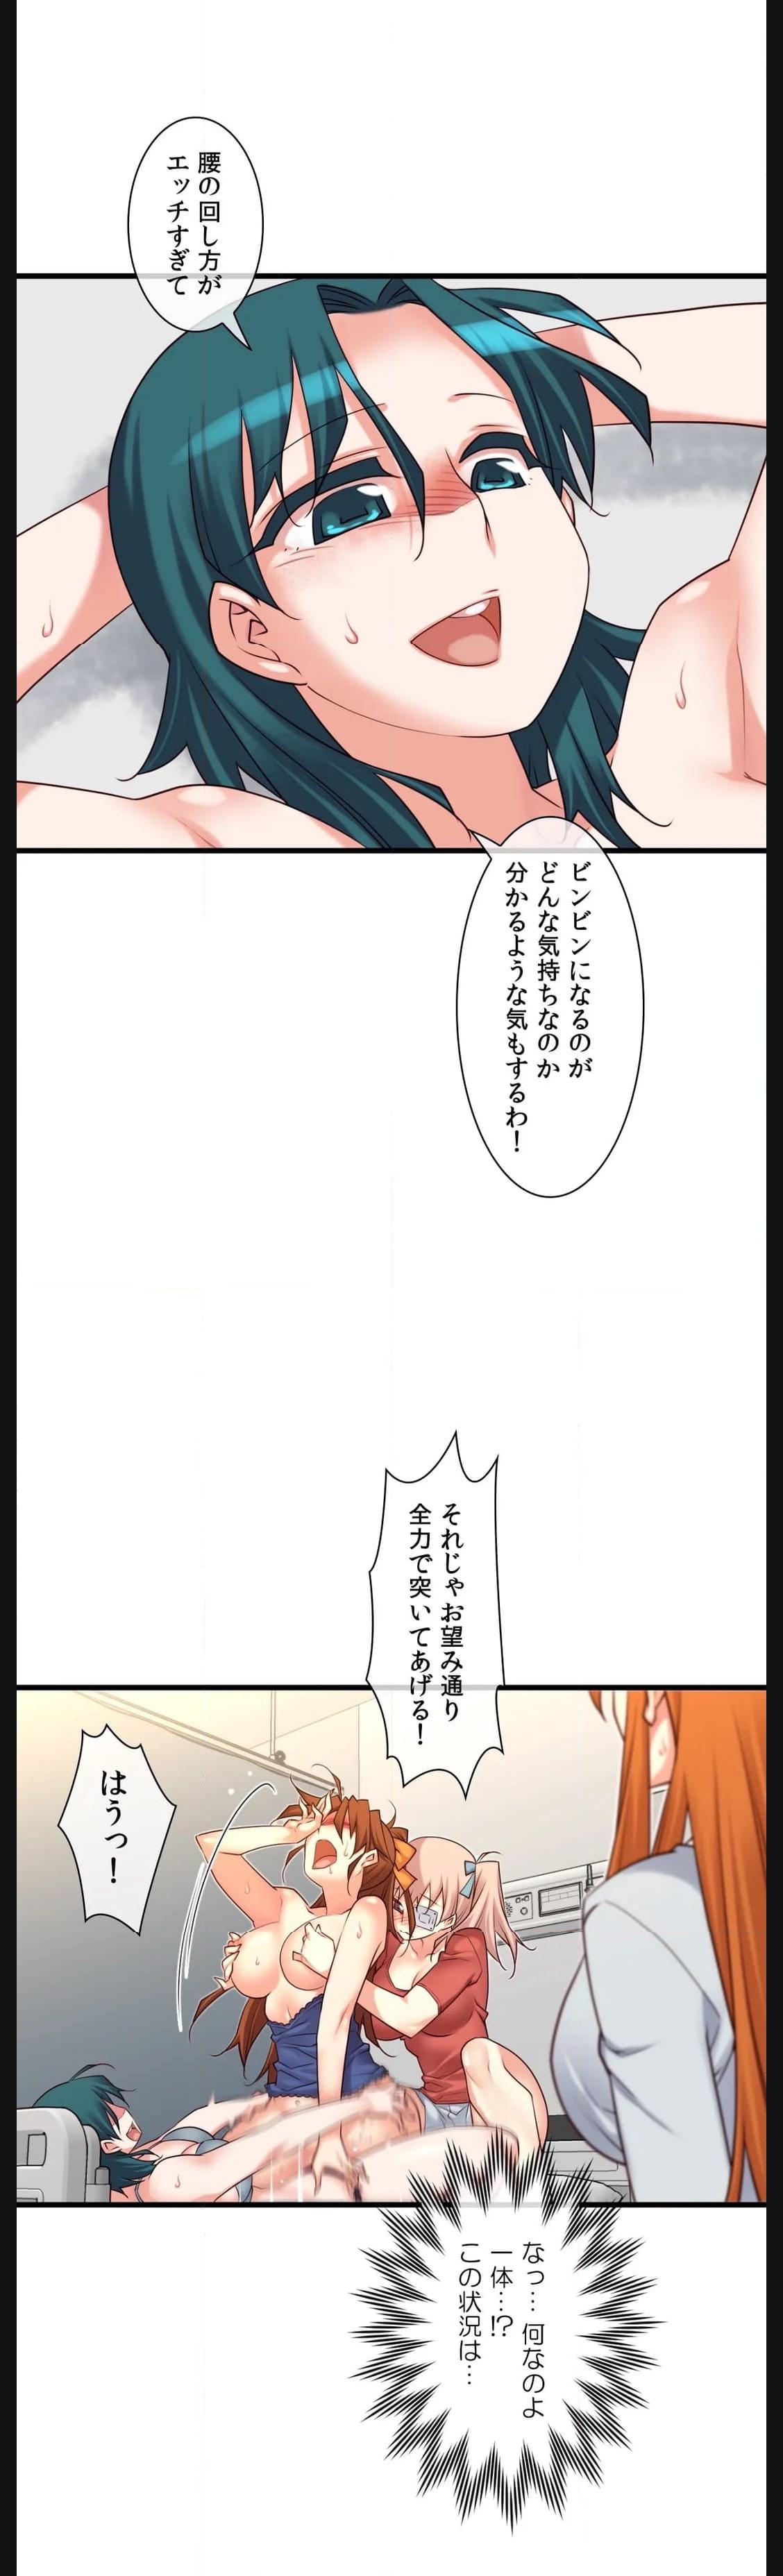 腰の回し方が
エッチすぎて
ビンビンになるのが
どんな気持ちなのか
分かるような気もするわ！
それじゃお望み通り
全力で突いてあげる！
はうっ！
なっ…何なのよ
一体…!?
この状況は…